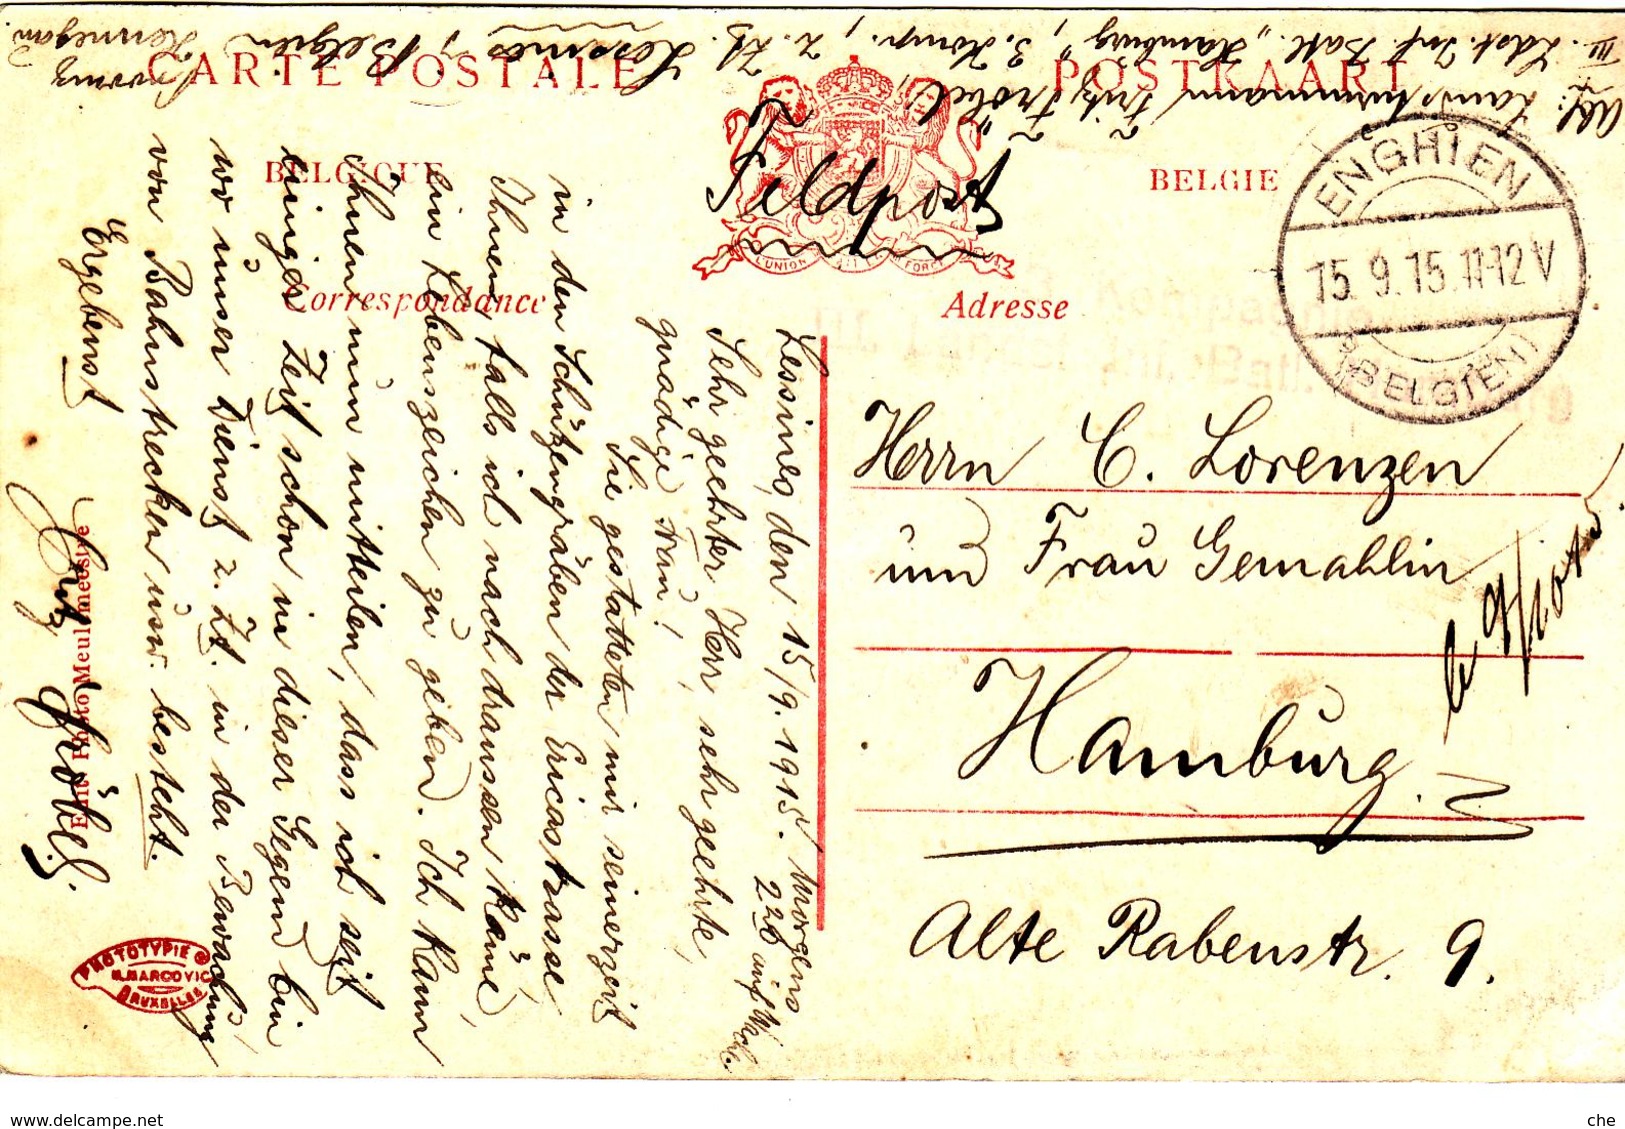 Abs: Landsturmmann Fritz Fröbel,
III. Ldst. Inf. Batl. „Hamburg", 3. Komp.,
z. Zt. Lessines, Belgien
Provinz Hennegau
CARTE POSTALE
POSTKAART
BELGIQUE
BELGIE
L'UNION FAIT LA FORCE
Feldpost
ENGHIEN
15. 9. 15. 11-12 V
(BELGIEN)
Correspondance
Adresse
Lessines, den 15/9. 1915. Morgens
2 20 auf Wache.
Sehr geehrter Herr, sehr geehrte,
gnädige Frau!
Sie gestatteten mir seinerzeit
in den Schützengräben der Ericastrasse,
Ihnen, falls ich nach draussen käme,
ein Lebenszeichen zu geben. Ich kann
Ihnen nun mitteilen, dass ich seit
einiger Zeit schon in dieser Gegend bin,
wo unser Dienst z. Zt. in der Bewachung
von Bahnstrecken usw. besteht.
Ergebenst
Fritz Fröbel.
Herrn C. Lorenzen
und Frau Gemahlin
Hamburg
Alte Rabenstr. 9.
Edit. Photo Meulemeestre
PHOTOTYPIE
M. MARCOVICI
BRUXELLES
www.delcampe.net
che